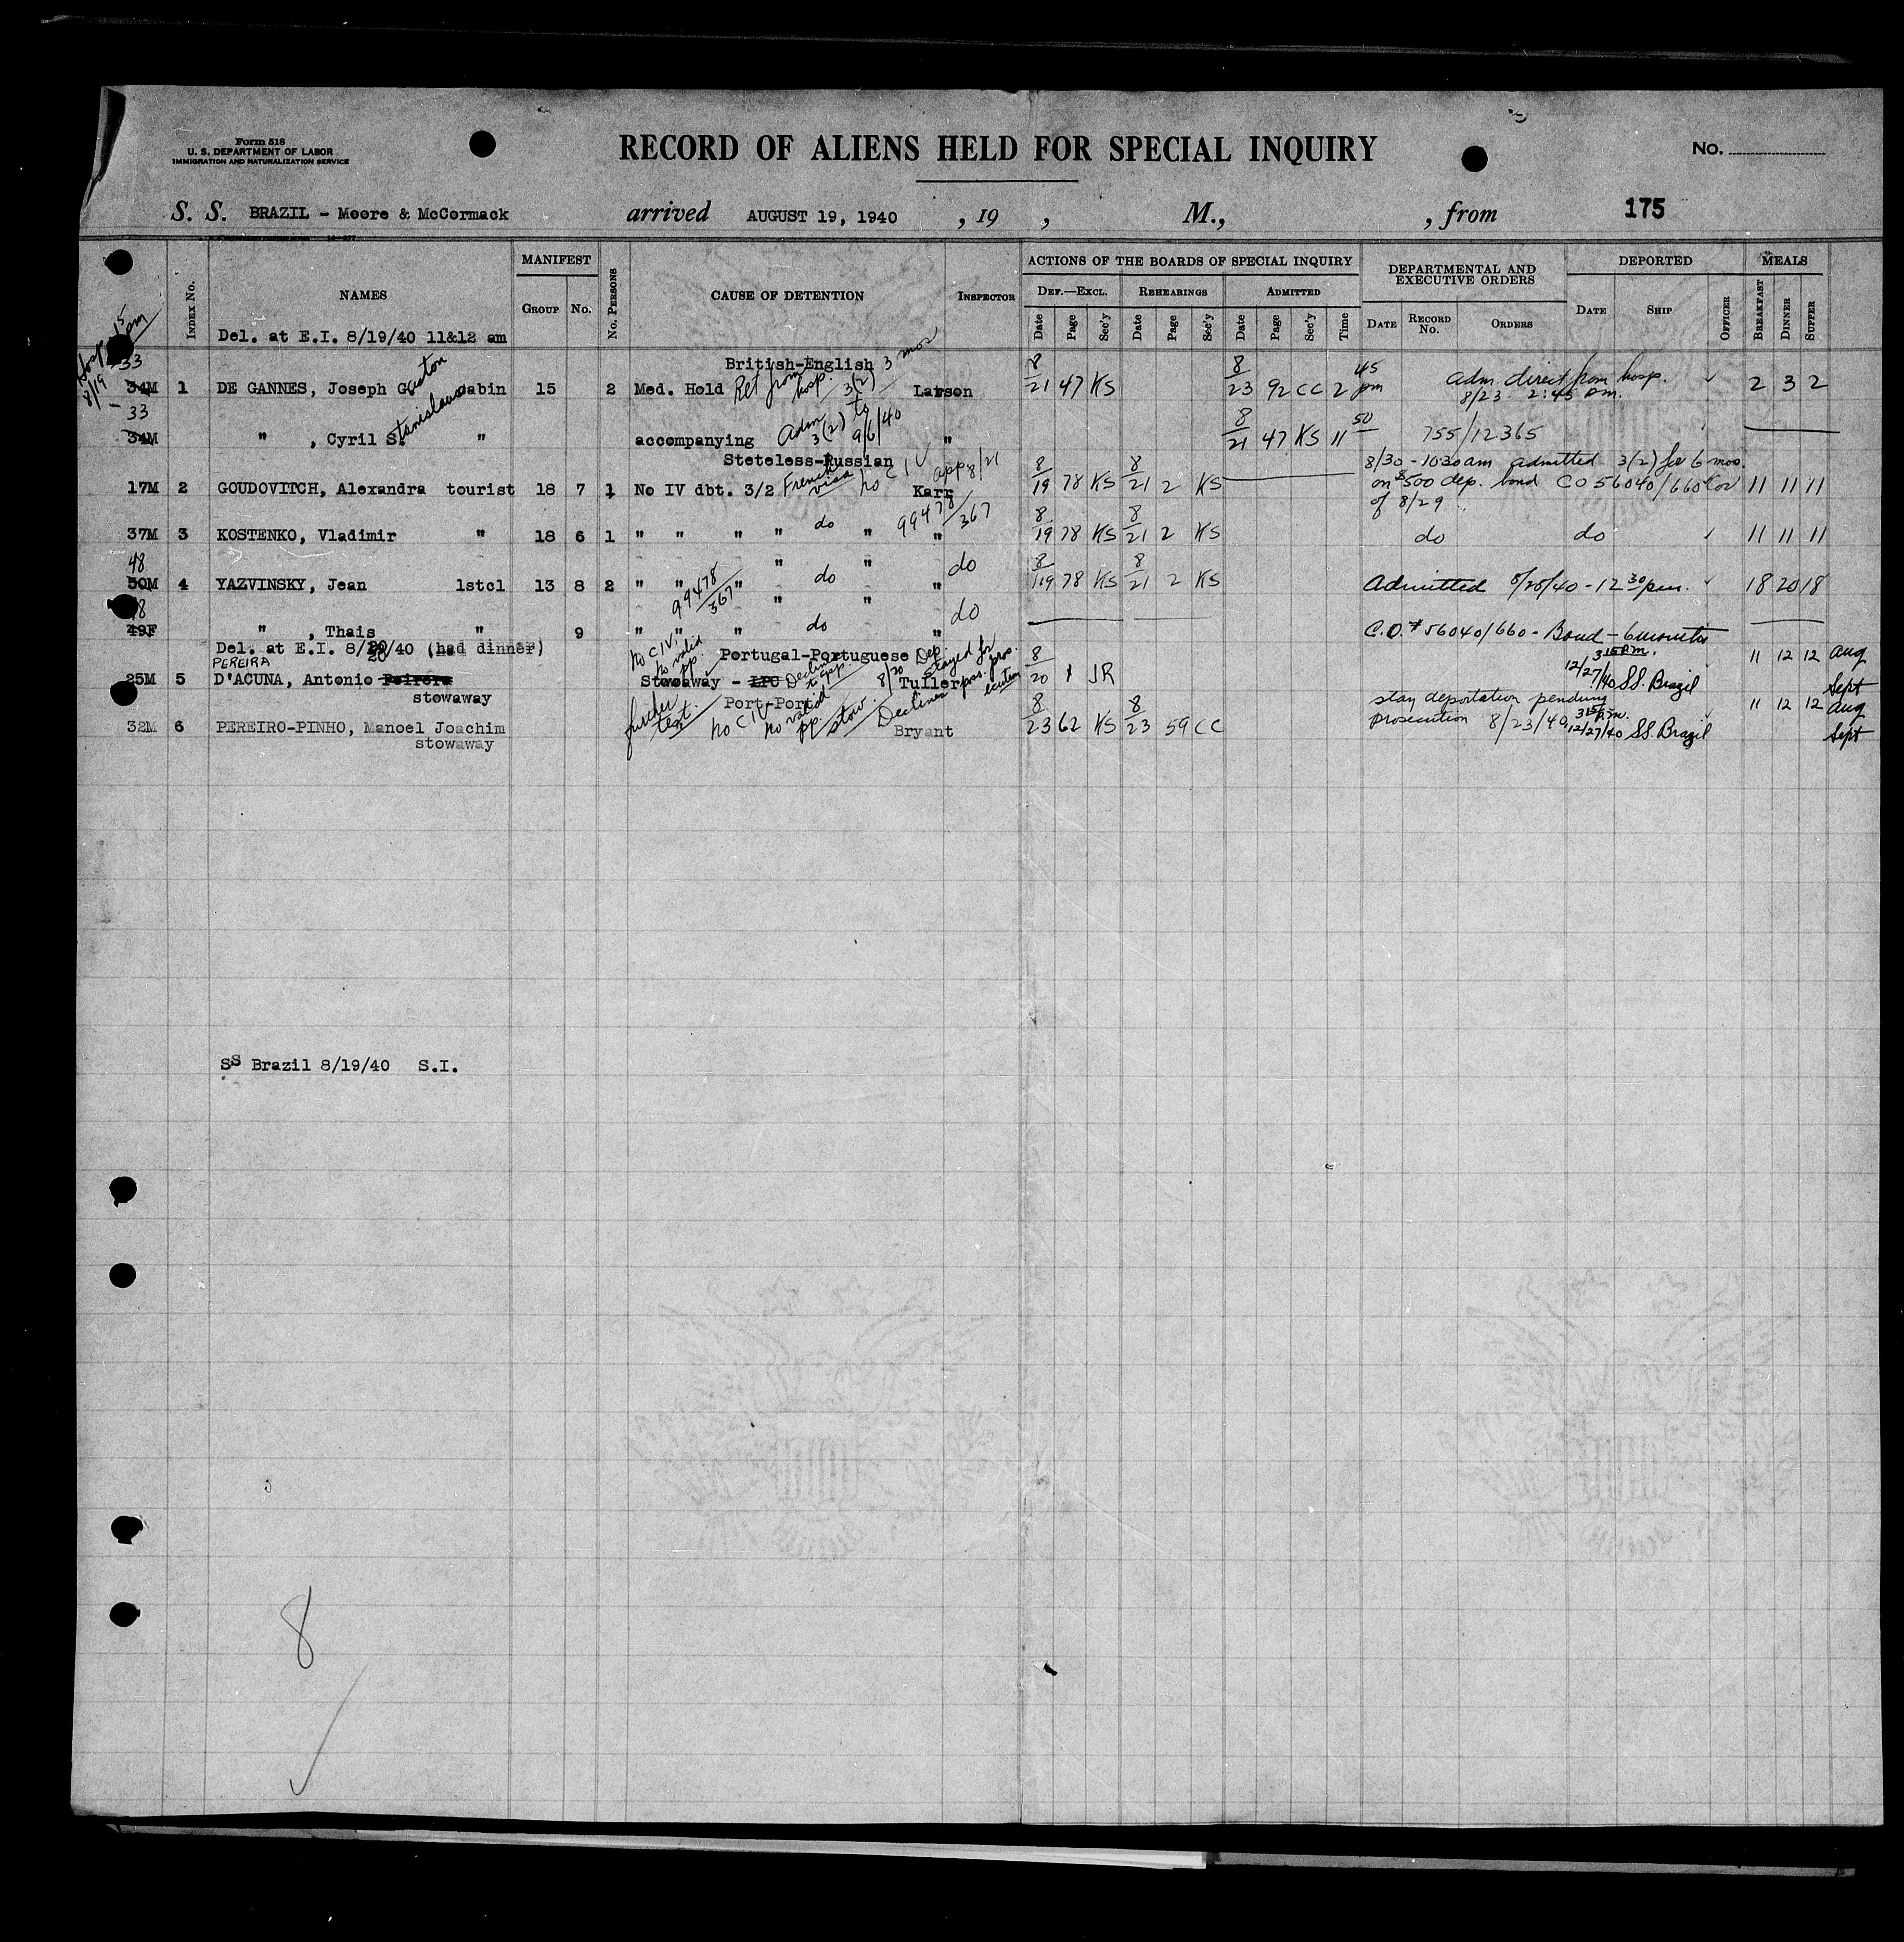 Form 518
U. S. DEPARTMENT OF LABOR
IMMIGRATION AND NATURALIZATION SERVICE
RECORD OF ALIENS HELD FOR SPECIAL INQUIRY
No.
S. S. BRAZIL - Moore & McCormack arrived AUGUST 19, 1940 , 19 , M., , from 175
MANIFEST ACTIONS OF THE BOARDS OF SPECIAL INQUIRY DEPARTMENTAL AND EXECUTIVE ORDERS DEPORTED MEALS
Index No. NAMES Group No. No. Persons CAUSE OF DETENTION Inspector Def.—Excl. Rehearings Admitted
Date Page Sec'y Date Page Sec'y Date Page Sec'y Time Date Record No. Orders Date Ship Officer Breakfast Dinner Supper
Del. at E.I. 8/19/40 11&12 am
Hosp 8/19 15 pm
British-English 3 mos
33 34M 1 DE GANNES, Joseph Gaston cabin 15 2 Med. Hold Ret from hosp. 3(2) Lawson 8/21 47 KS 8/23 92 CC 2 45 pm Adm. direct from hosp. 8/23 2:45 pm. 2 3 2
33 34M " , Cyril S. Stanislaus " accompanying Adm 3(2) to 9/6/40 " 8/21 47 KS 11 50 755/12365
Steteless-Russian
17M 2 GOUDOVITCH, Alexandra tourist 18 7 1 No IV dbt. 3/2 French visa no C I V app 8/21 Karr 8/19 78 KS 8/21 2 KS 8/30 - 10:30 am admitted 3(2) for 6 mos. on $500 dep. bond CO 56040/660 of 8/29 11 11 11
37M 3 KOSTENKO, Vladimir " 18 6 1 " " " " do " 99478/367 " 8/19 78 KS 8/21 2 KS do do 11 11 11
48 50M 4 YAZVINSKY, Jean 1stcl 13 8 2 " " 99478/367 " " do " " do 8/19 78 KS 8/21 2 KS Admitted 8/28/40 - 12 30 pm. 18 20 18
48 49F " , Thais " 9 " " " " do " " do C.O. # 56040/660 - Bond - 6 months
Del. at E.I. 8/20/40 (had dinner)
Portugal-Portuguese
PEREIRA
25M 5 D'ACUNA, Antonio Peirera stowaway no CIV. no valid pp. Stowaway - LPC Declines to app. 8/20 Tuller Dep. stayed for prosecution 8/20 1 JR 3 15 P.m. 12/27/40 SS. Brazil 11 12 12 Aug Sept
Port-Port
32M 6 PEREIRO-PINHO, Manoel Joachim stowaway further test. no CIV no valid pp. stow. Declines Bryant 8/23 62 KS 8/23 59 CC stay deportation pending prosecution 8/23/40 3 15 P.m. 12/27/40 SS. Brazil 11 12 12 Aug Sept
SS Brazil 8/19/40 S.I.
8